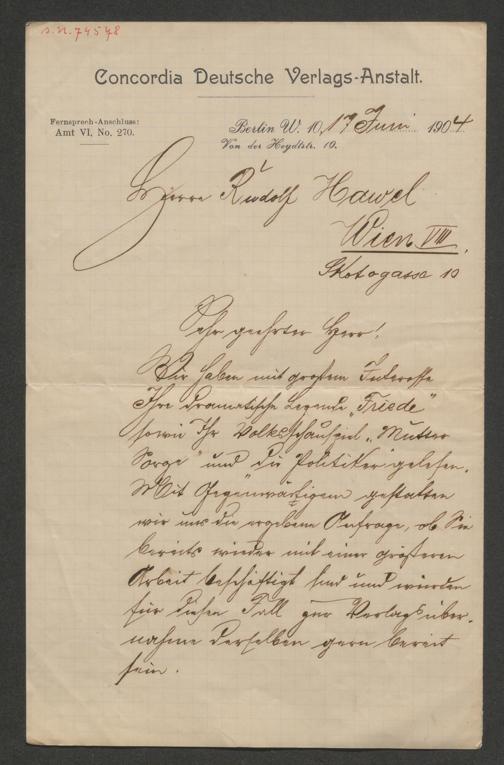 S.N. 74548
Concordia Deutsche Verlags-Anstalt.
Fernsprech-Anschluss:
Amt VI, No. 270.
Berlin W. 10, 17 Juni 1904.
Von der Heydtstr. 10.
Herrn Rudolf Hawel
Wien VIII,
Skodagasse 10
Sehr geehrter Herr!
Wir haben mit großem Interesse
Ihre dramatische Legende „Friede"
sowie Ihr Volksschauspiel „Mutter
Sorge" und die Politiker gelesen.
Mit Gegenwärtigem gestatten
wir uns die ergebene Anfrage, ob Sie
bereits wieder mit einer größeren
Arbeit beschäftigt sind und würden
für diesen Fall zur Verlagsüber-
nahme derselben gern bereit
sein.